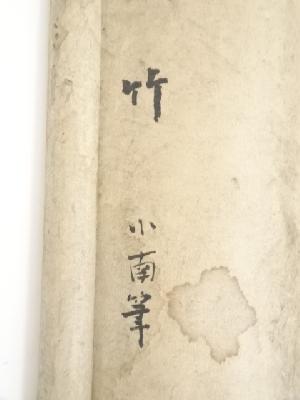 竹
小南筆